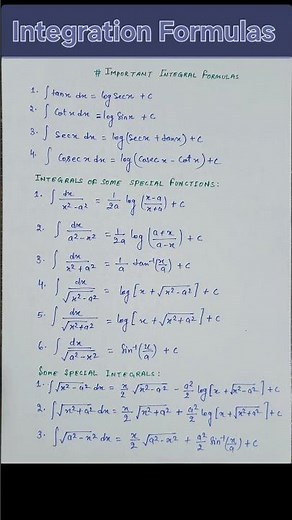 Integration Formulas
# IMPORTANT INTEGRAL FORMULAS
1. ∫ tanx dx = log Secx + C
2. ∫ Cotx dx = log Sinx + C
3. ∫ Secx dx = log(Secx + tanx) + C
4. ∫ Cosec x dx = log(Cosec x - Cotx) + C
INTEGRALS OF SOME SPECIAL FUNCTIONS:
1. ∫ dx/(x²-a²) = 1/2a log((x-a)/(x+a)) + C
2. ∫ dx/(a²-x²) = 1/2a log((a+x)/(a-x)) + C
3. ∫ dx/(x²+a²) = 1/a tan⁻¹(x/a) + C
4. ∫ dx/√(x²-a²) = log[x + √(x²-a²)] + C
5. ∫ dx/√(x²+a²) = log[x + √(x²+a²)] + C
6. ∫ dx/√(a²-x²) = Sin⁻¹(x/a) + C
SOME SPECIAL INTEGRALS:
1. ∫√(x²-a²) dx = x/2 √(x²-a²) - a²/2 log[x+√(x²-a²)] + C
2. ∫√(x²+a²) dx = x/2 √(x²+a²) + a²/2 log[x+√(x²+a²)] + C
3. ∫√(a²-x²) dx = x/2 √(a²-x²) + a²/2 Sin⁻¹(x/a) + C